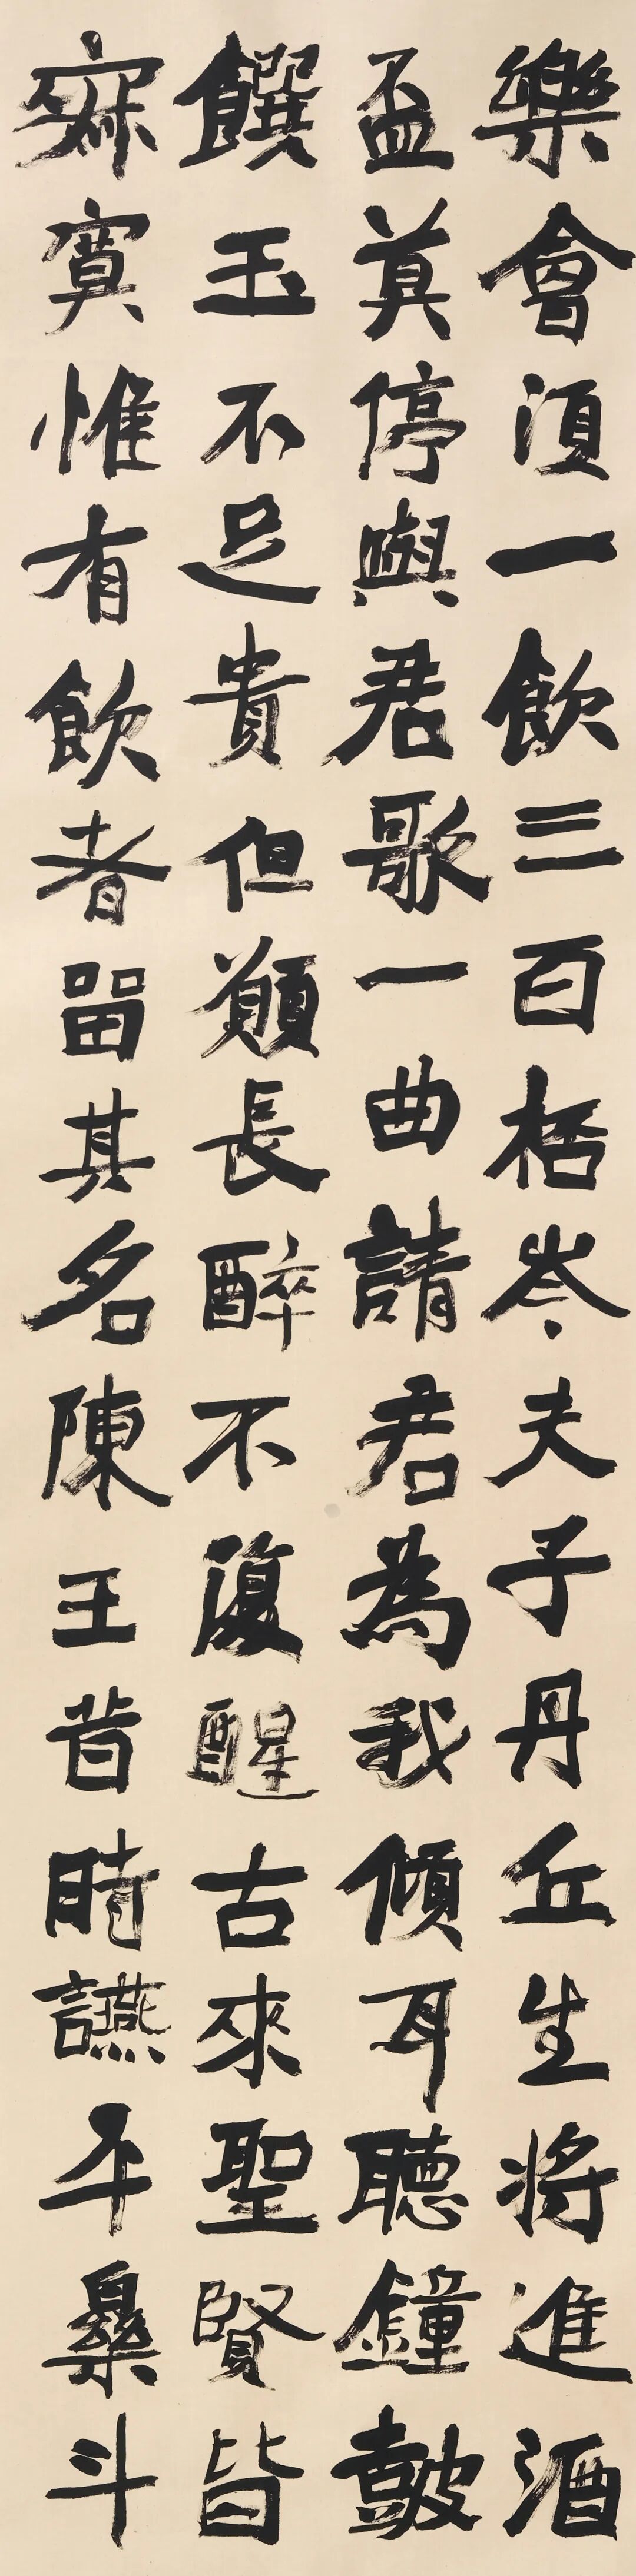 樂會須一飲三百桮岑夫子丹丘生將進酒
盃莫停與君歌一曲請君為我傾耳聽鐘鼓
饌玉不足貴但願長醉不復醒古來聖賢皆
寂寞惟有飲者留其名陳王昔時讌平樂斗